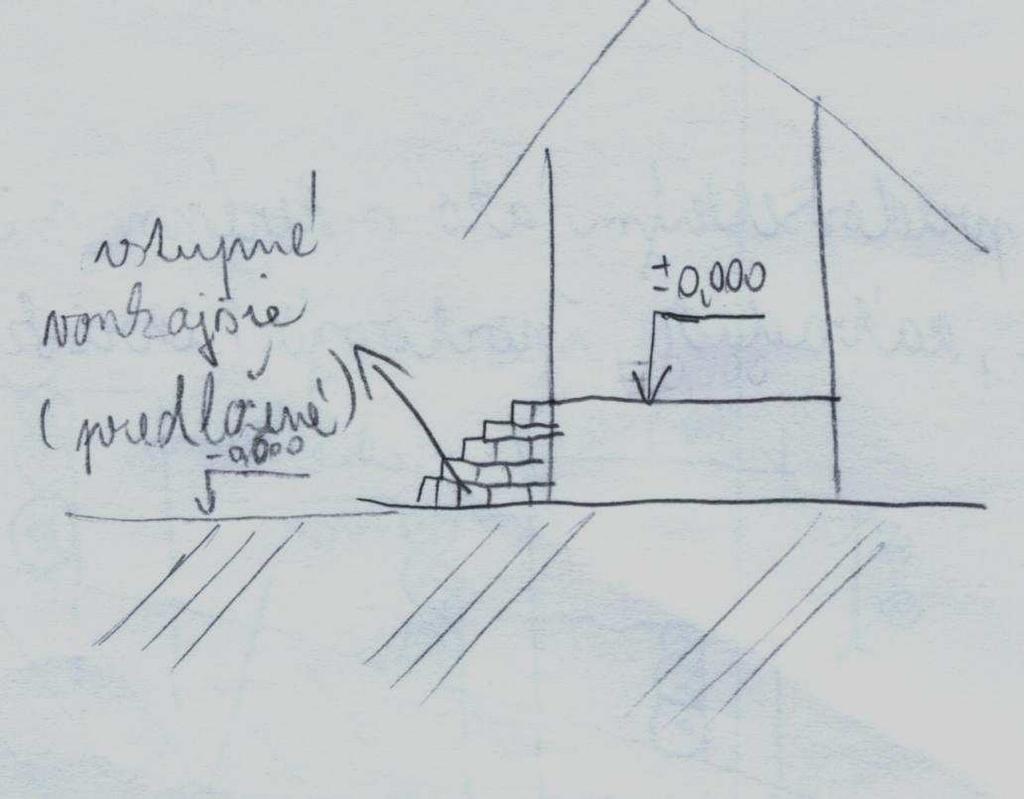 vstupné
vonkajšie
(predložené)
-0,000
±0,000